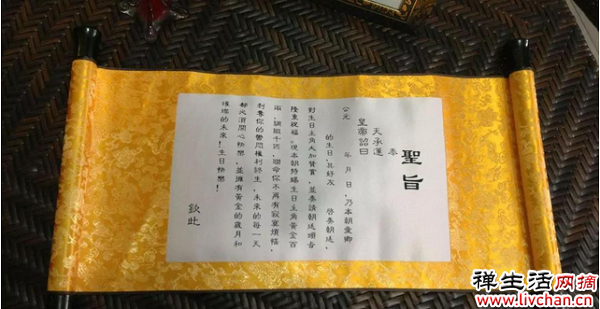 聖旨
奉
天承運
皇帝詔曰
公元 年 月 日,乃本朝愛卿
的生日,其好友 啓奏朝廷,
對生日主角大加贊賞,並奏請朝廷
隆重祝福。現本朝特賜生日主角黃金百
兩,綢緞千匹,命你不再有寂寞煩惱,
剝奪你的鬱悶權利終生,未來的每一天
都必須開心快樂,並擁有黃金的歲月和
璀璨的未來!生日快樂!
欽此
禅生活网摘
www.livchan.cn